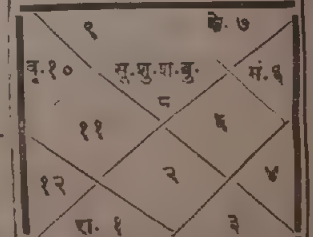 ९ के. ७
वृ. १० सू. शु. श. बु. मं. ६
८
११ ६
१२ २ ४
रा. १ ३